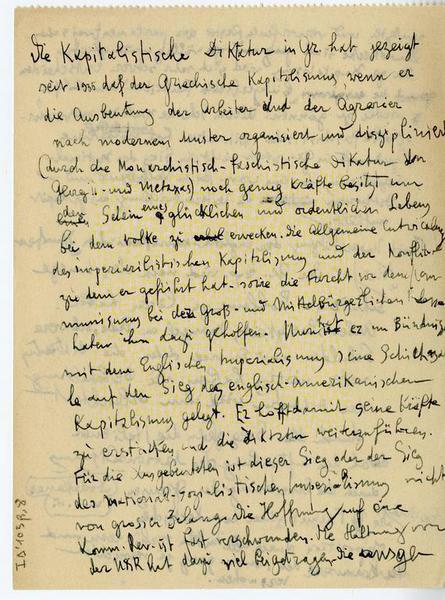 Die Kapitalistische Diktatur in Gr. hat gezeigt
seit 1935 daß der Griechische Kapitalismus wenn er
die Ausbeutung der Arbeiter und der Agrarier
nach modernem Muster organisiert und diszipliniert
(durch die Monarchistisch-faschistische Diktatur von
Georg II - und Metaxas) noch genug Kräfte besitzt um
den Schein eines glücklichen und ordentlichen Lebens
bei dem Volke zu erwecken. Die allgemeine Entwicklung
des imperialistischen Kapitalismus und der Konflikt
zu dem er geführt hat - sowie die Furcht vor dem Kom
munismus bei den Groß- und Mittelbürgerlichen
haben ihm dazu geholfen. Nun hat er im Bündnis
mit dem Englischen Imperialismus seine Schicksa
le auf den Sieg des englisch-amerikanischen
Kapitalismus gelegt. Er hofft damit seine Kräfte
zu und die Diktatur weiterzuführen.
Für die Ausgebeuteten ist dieser Sieg oder der Sieg
des national-sozialistischen Imperialismus nicht
von grosser Belang. Die Hoffnung auf eine
Komm. Rev. ist fast verschwunden. Die Haltung von
der USSR hat dazu viel beigetragen die
ID 103 p. 8